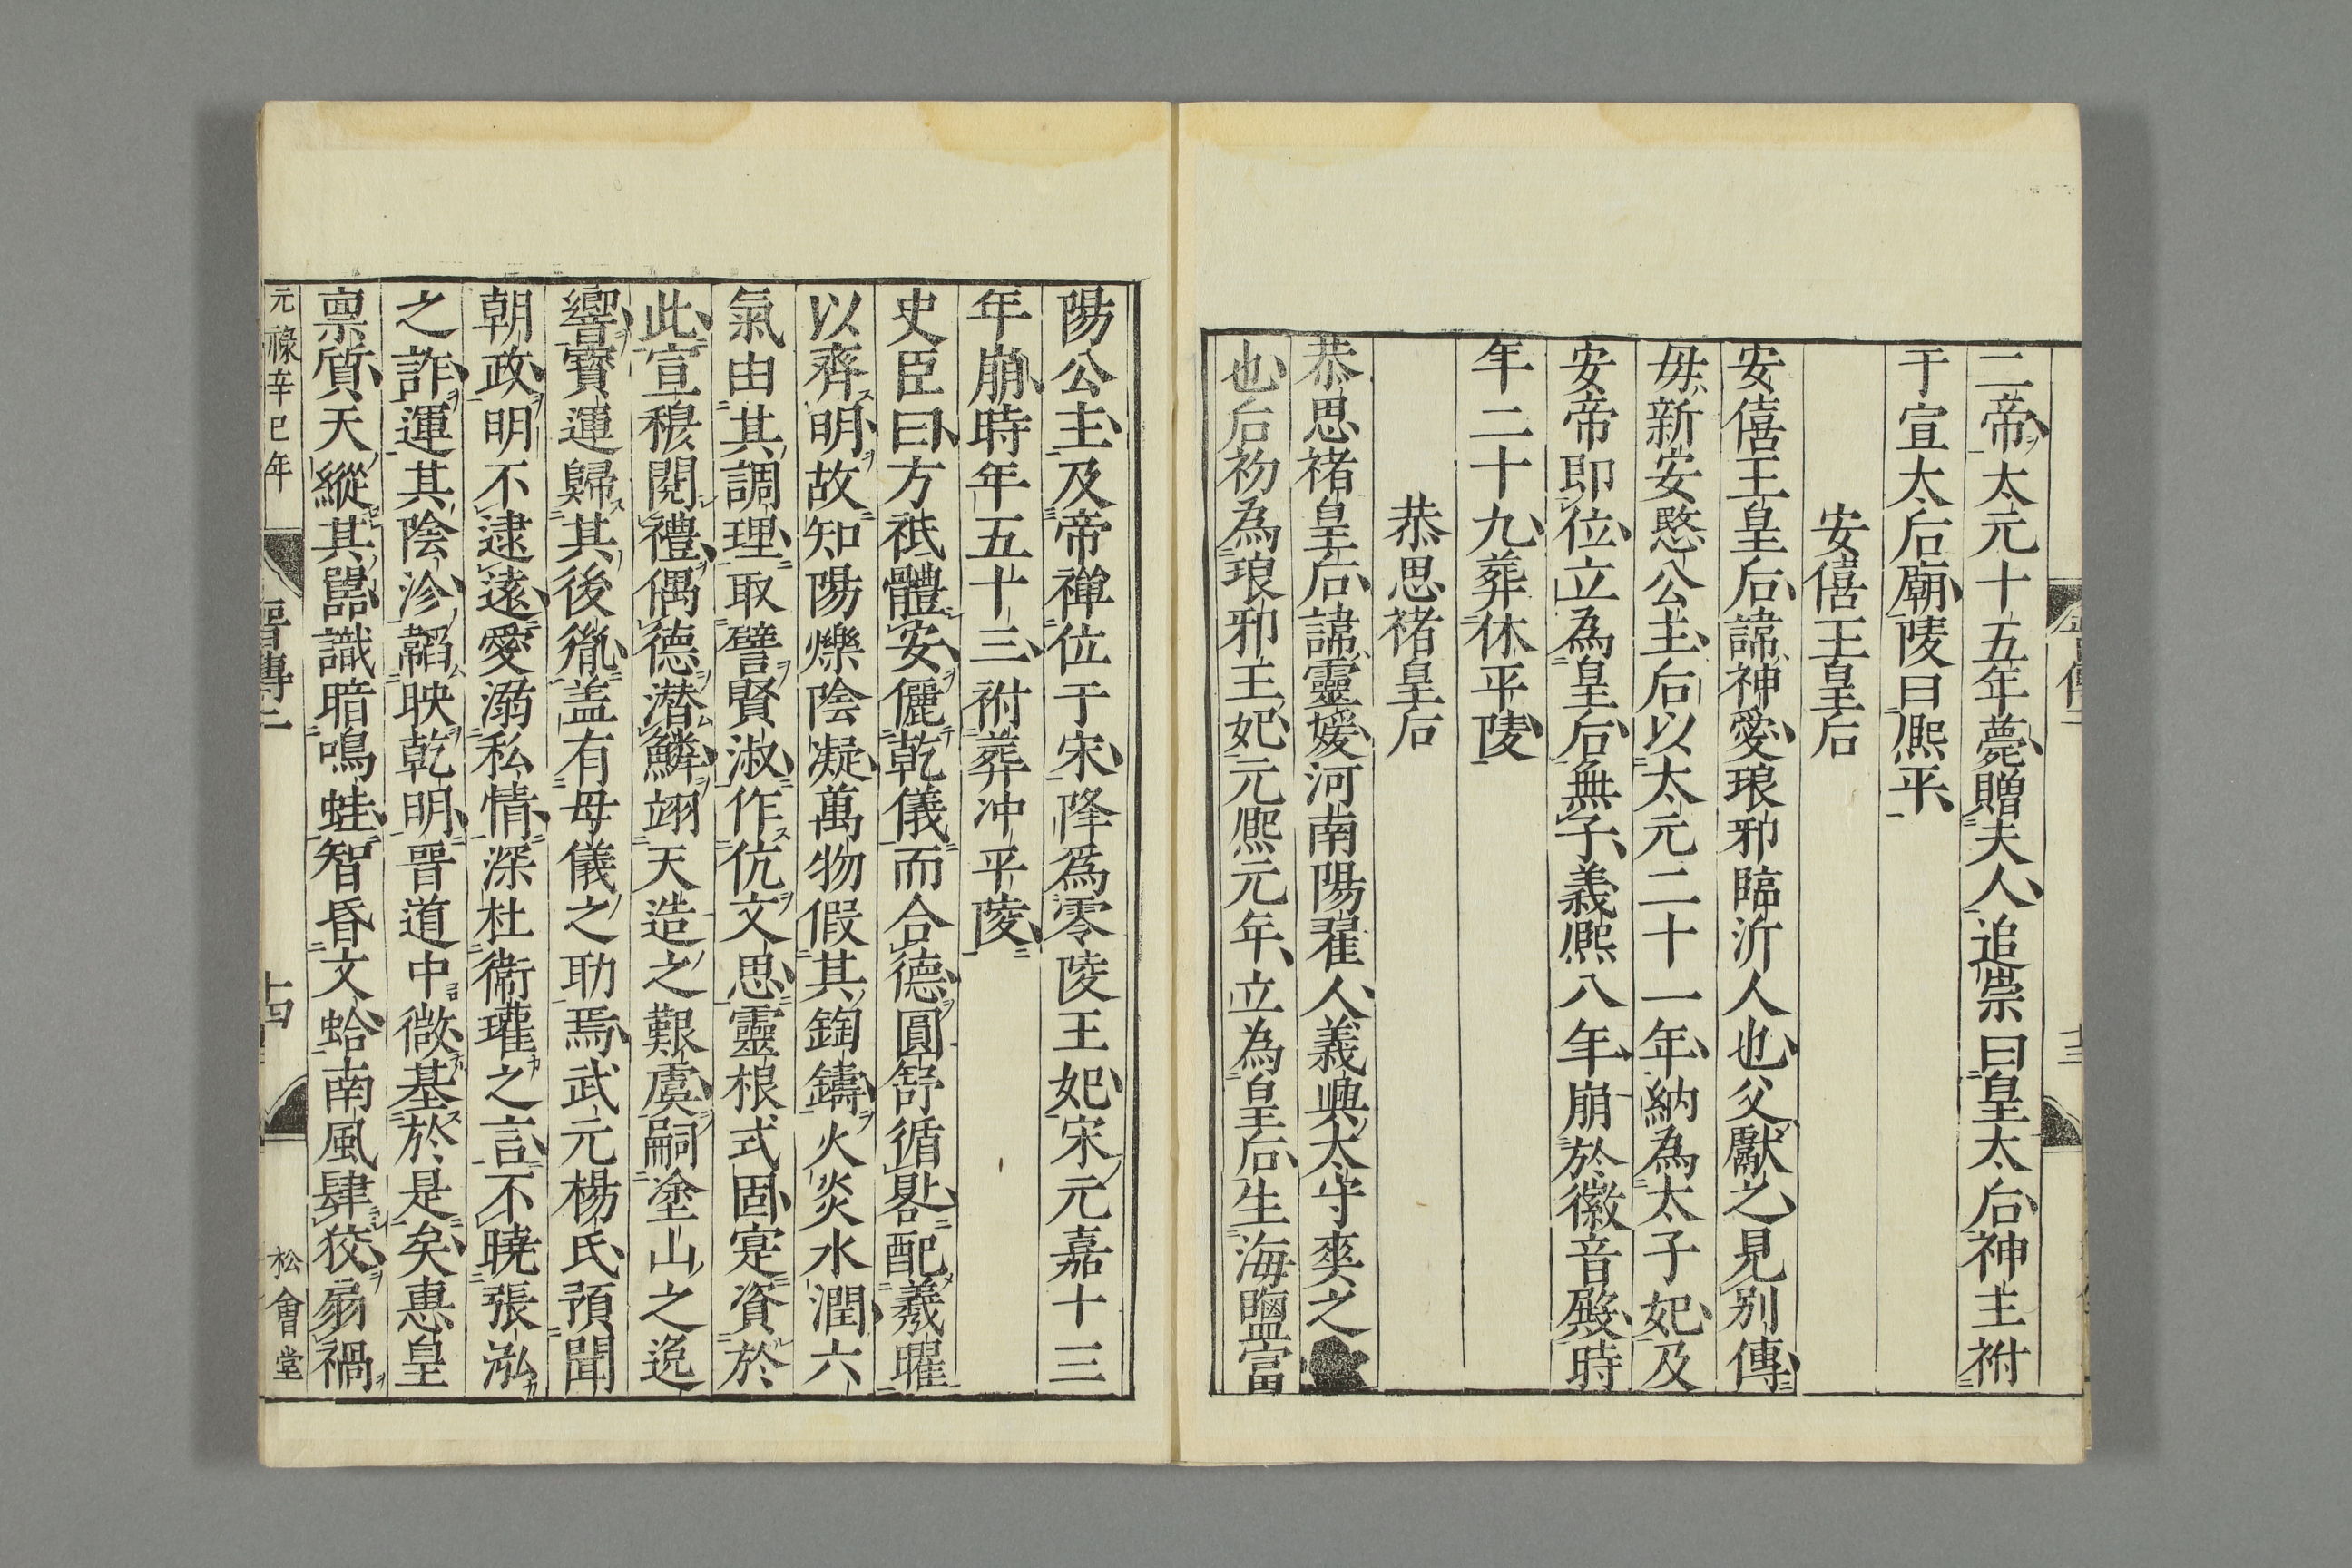 二帝太元十五年薨贈夫人追崇曰皇太后神主祔
于宣太后廟陵曰熈平
安僖王皇后
安僖王皇后諱神愛琅邪臨沂人也父獻之見别傳
毋新安愍公主后以太元二十一年納為太子妃及
安帝即位立為皇后無子義熈八年崩於徽音殿時
年二十九葬休平陵
恭思褚皇后
恭思褚皇后諱靈媛河南陽翟人義興太守爽之
也后初為琅邪王妃元熈元年立為皇后生海鹽富
陽公主及帝禅位于宋降爲零陵王妃宋元嘉十三
年崩時年五十三祔葬冲平陵
史臣曰方祇體安儷乾儀而合德圓舒循晷配羲曜
以齊明故知陽爍陰凝萬物假其鎔鑄火炎水潤六
氣由其調理取譬賢淑作伉文思靈根式固寔資於
此宣穆閱禮偶德潜鱗翊天造之艱虞嗣塗山之逸
響寳運歸其後胤盖有母儀之助焉武元楊氏預聞
朝政明不逮遠愛溺私情深杜衞瓘之言不曉張泓
之詐運其陰沴韜映乾明晋道中微基於是矣惠皇
稟質天縱其嚚識暗鳴蛙智昏文蛤南風肆狡扇禍
元禄辛巳年
晋傳二
十四
松會堂